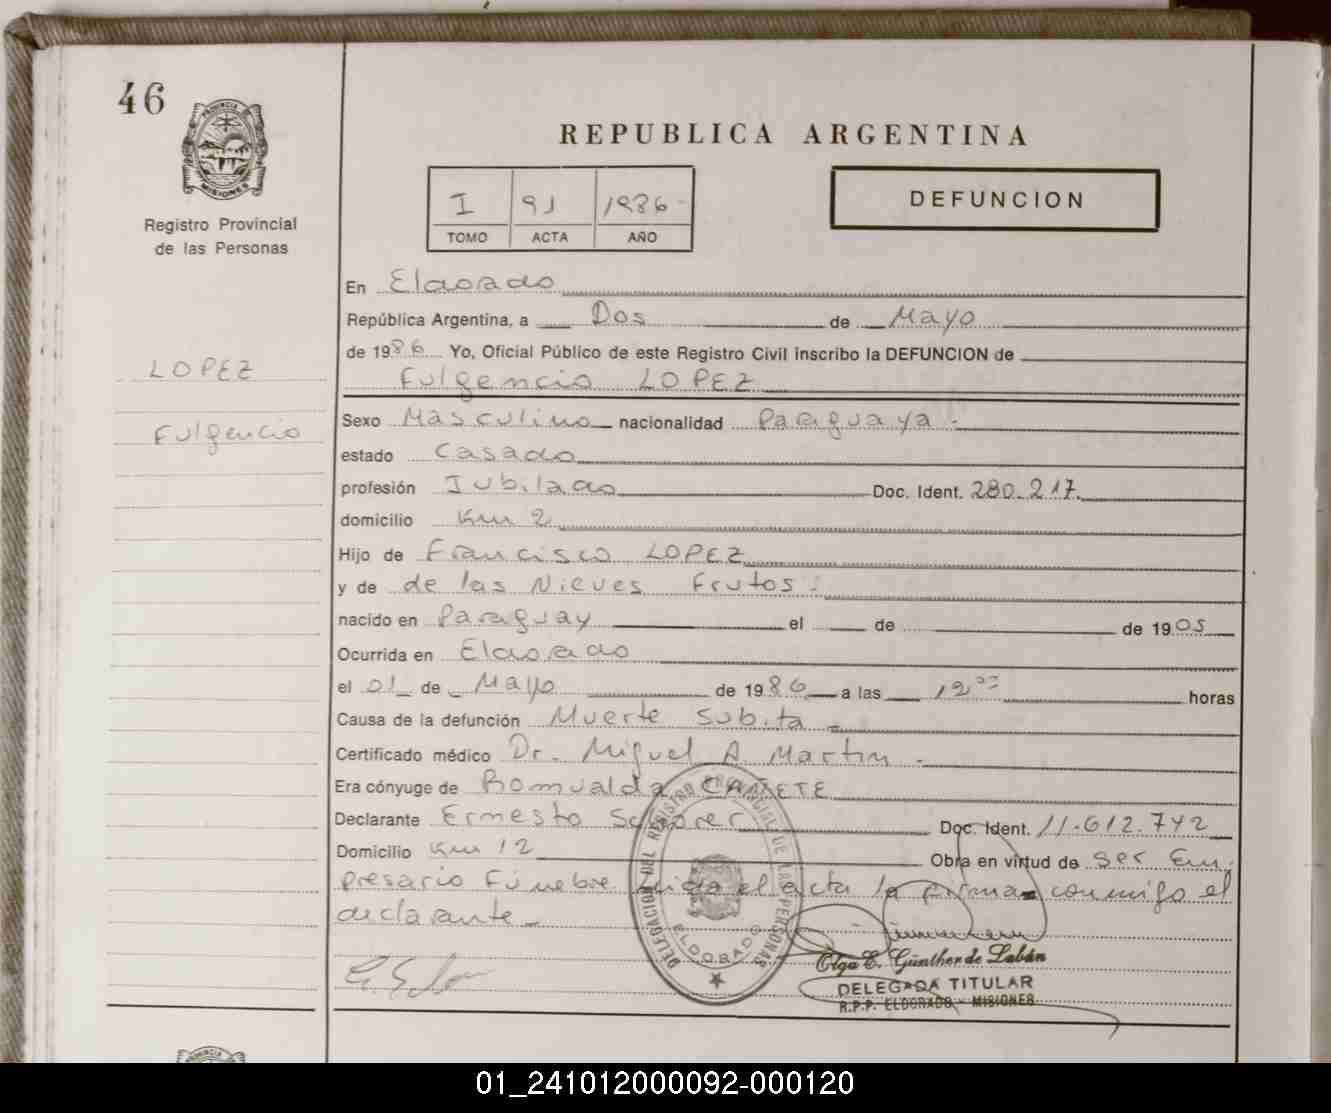 46
PROVINCIA DE
MISIONES
Registro Provincial
de las Personas
LOPEZ
Fulgencio
REPUBLICA ARGENTINA
I 91 1986
TOMO ACTA AÑO
DEFUNCION
En Eldorado
República Argentina, a Dos de Mayo
de 1986 Yo, Oficial Público de este Registro Civil inscribo la DEFUNCION de
Fulgencio LOPEZ
Sexo Masculino nacionalidad Paraguaya.
estado Casado
profesión Jubilado Doc. Ident. 280.217.
domicilio Km 2
Hijo de Francisco LOPEZ
y de de las Nieves Frutos.
nacido en Paraguay el de de 1905
Ocurrida en Eldorado
el 01 de Mayo de 1986 a las 12⁰⁰ horas
Causa de la defunción Muerte Subita
Certificado médico Dr. Miguel A Martin
Era cónyuge de Romualda CAÑETE
Declarante Ernesto Doc. Ident. 11.612.742
Domicilio Km 12 Obra en virtud de ser Em-
presario Fúnebre Leida el acta la firma conmigo el
declarante
DELEGACION DEL REGISTRO PROVINCIAL DE LAS PERSONAS
ELDORADO
Olga E. Günther de Labán
DELEGADA TITULAR
R.P.P. ELDORADO - MISIONES
01_241012000092-000120